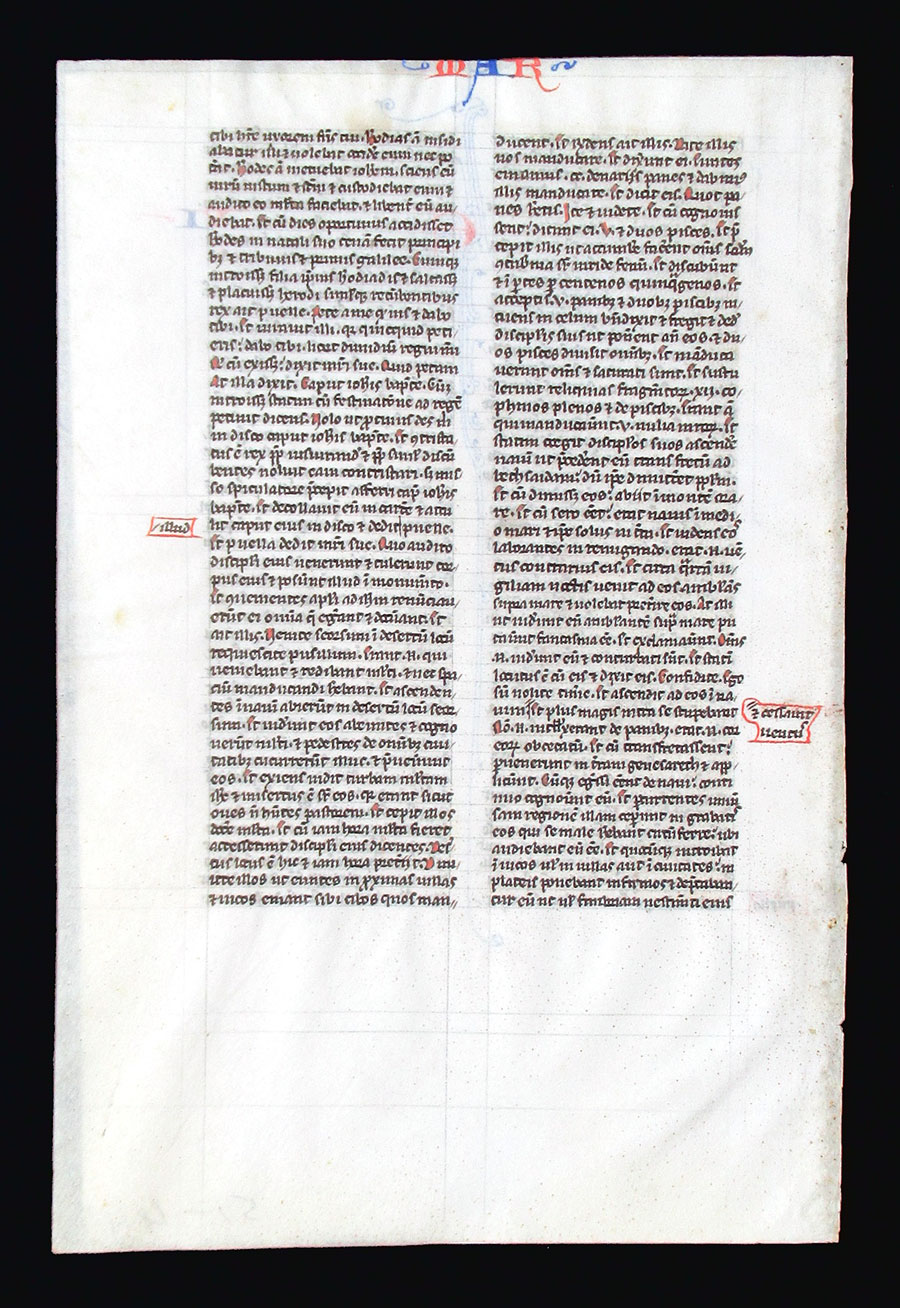 MAR
tibi hr̄e uxorem fr̄is tui. Herodias aū insidi
abatur illi & uolebat occidere eum nec po
t̄at. Herodes aū metuebat ioh̄em. sciens eū
uirū iustum & sc̄m & custodiebat eum &
audito eo mlta faciebat. & libent̄ eū au/
diebat. Et cū dies oportunus accidisset
h̄odes in natali suo cenā fecit principi
bȝ & tribunis & primis galilee. Cumqȝ
introisset filia ipius h̄odiadis & saltasset
& placuisset herodi simulqȝ recūbentibus
rex ait puelle. Pete a me q̄ uis & dabo
tibi. Et iurauit illi. qr quicquid peti
eris: dabo tibi. licet dimidiū regni mi
Q̄ cū exisset: dixit mr̄i sue. Quid petam
At illa dixit. Caput ioh̄is bapt̄e. Cūqȝ
introisset statim cū festinatōne ad regē
petiuit dicens. Uolo ut protinus des m̄
in disco caput ioh̄is bapt̄e. Et ɔtrista/
tus ē rex pp iusiurand̄ & pp simul discū
bentes noluit eam contristari. s; mis
so spiculatore p̄cepit afferri cap̄ ioh̄is
bapt̄e. Et decollauit eū in carc̄e & attu
lit caput eius in disco & dedit puelle.
illud
Et puella dedit mr̄i sue. Quo audito
discipl̄i eius uenerunt & tulerunt cor/
pus eius & posūnt illud ī monum̄to.
Et ɔuenientes apl̄i ad ihm renūciau/
erūt ei omīa q̄ eḡant & docuant. Et
ait illis. Uenite seorsum ī desertū locū
requiescite pusillum. Erant .n. qui
ueniebant & redibant mlti. & nec spa/
ciū manducandi h̄ebant. Et ascenden/
tes ī nauī abierūt in desertū locū seor
sum. Et uid̄unt eos abeuntes & cogno
uerūt mlti. & pedestres de omībȝ ciui
tatibȝ cucurrerūt illuc. & p̄uen̄unt
eos. Et exiens uidit turbam mltam
ihc & misertus ē sr̄ eos. qr erant sicut
oues n̄ h̄ntes pastorem. Et cepit illos
doc̄e mlta. Et cū iam hora mlta fieret
accesserunt discipl̄i eius dicentes. Des/
tus locus ē hic & iam hora pret̄iit. Dimi/
itte illos ut euntes in proximas uillas
& uicos emant sibi cibos quos man//
ducent. Et r̄ndens ait illis. Date illis
uos manducare. Et dix̄unt ei. Euntes
emamus .cc. denariis panes & dabimus
illis manducare. Et dicit eis. Quot pa/
nes h̄etis. Ite & uidete. Et cū cognouis
sent: dicunt ei. .V. & duos pisces. Et p̄
cepit illis ut accumb̄e fac̄ent omīs scdm
ɔtub̄nia sr̄ uiride fenū. Et discubūnt
& ī p̄tes p centenos quinq̄genos. Et
acceptis .v. panibȝ & duobȝ piscibȝ in/
tuens in celum bn̄dixit & fregit & ded̄
discipl̄is suis ut pon̄ent an̄ eos. & du/
os pisces diuisit omībȝ. Et māduca
uerunt omīs & saturati sunt. Et sustu
lerunt reliquias fragm̄torȝ .xii. co/
phinos plenos & de piscibȝ. Erant aū
qui manducauūnt .v. milia uirorȝ. Et
statim coegit discipl̄os suos ascend̄e
nauī ut p̄ced̄ent eū trans fretū ad
bethsaidam: dū ip̄e dimitt̄et ppl̄m.
Et cū dimisisset eos: abiit ī monte ora/
re. Et cū sero eēt: erat nauis ī medi/
o mari & ip̄e solus in t̄ra. Et uidens eos
laborantes in remigando. erat .n. uē/
tus contrarius eis. Et circa q̄rtā ui/
giliam noctis uenit ad eos ambulās
supra mare & uolebat preterire eos. At illi
ut uid̄unt eū ambulantē supra mare pu
tauūnt fantasma eē. Et exclamaūnt. Om̄s
.n. uid̄unt eū & conturbati sūt. Et statī
locutus ē cū eis & dixit eis. Confidite. Ego
sū nolite time. Et ascendit ad eos ī na/
uim Et plus magis intra se stupebant
& cessauit
uentus
Nō .n. intellexerant de panibȝ. erat .n. cor
eorȝ obcecatū. Et cū transfretassent:
puenerunt in t̄ram genesareth & appl/
licūnt. Cūqȝ egressi eēnt de naui: conti
nuo cognoūnt eū. Et p̄currentes uniū/
sam regionē illam cep̄unt in grabatis
eos qui se male h̄ebant circūferre: ubi
audiebant eū eē. Et quocūqȝ introibat
ī uicos ul̄ in uillas aut ī ciuitates: in
plateis ponebant infirmos & dep̄caban/
tur eū ut ul̄ fimbriam uestim̄ti eius